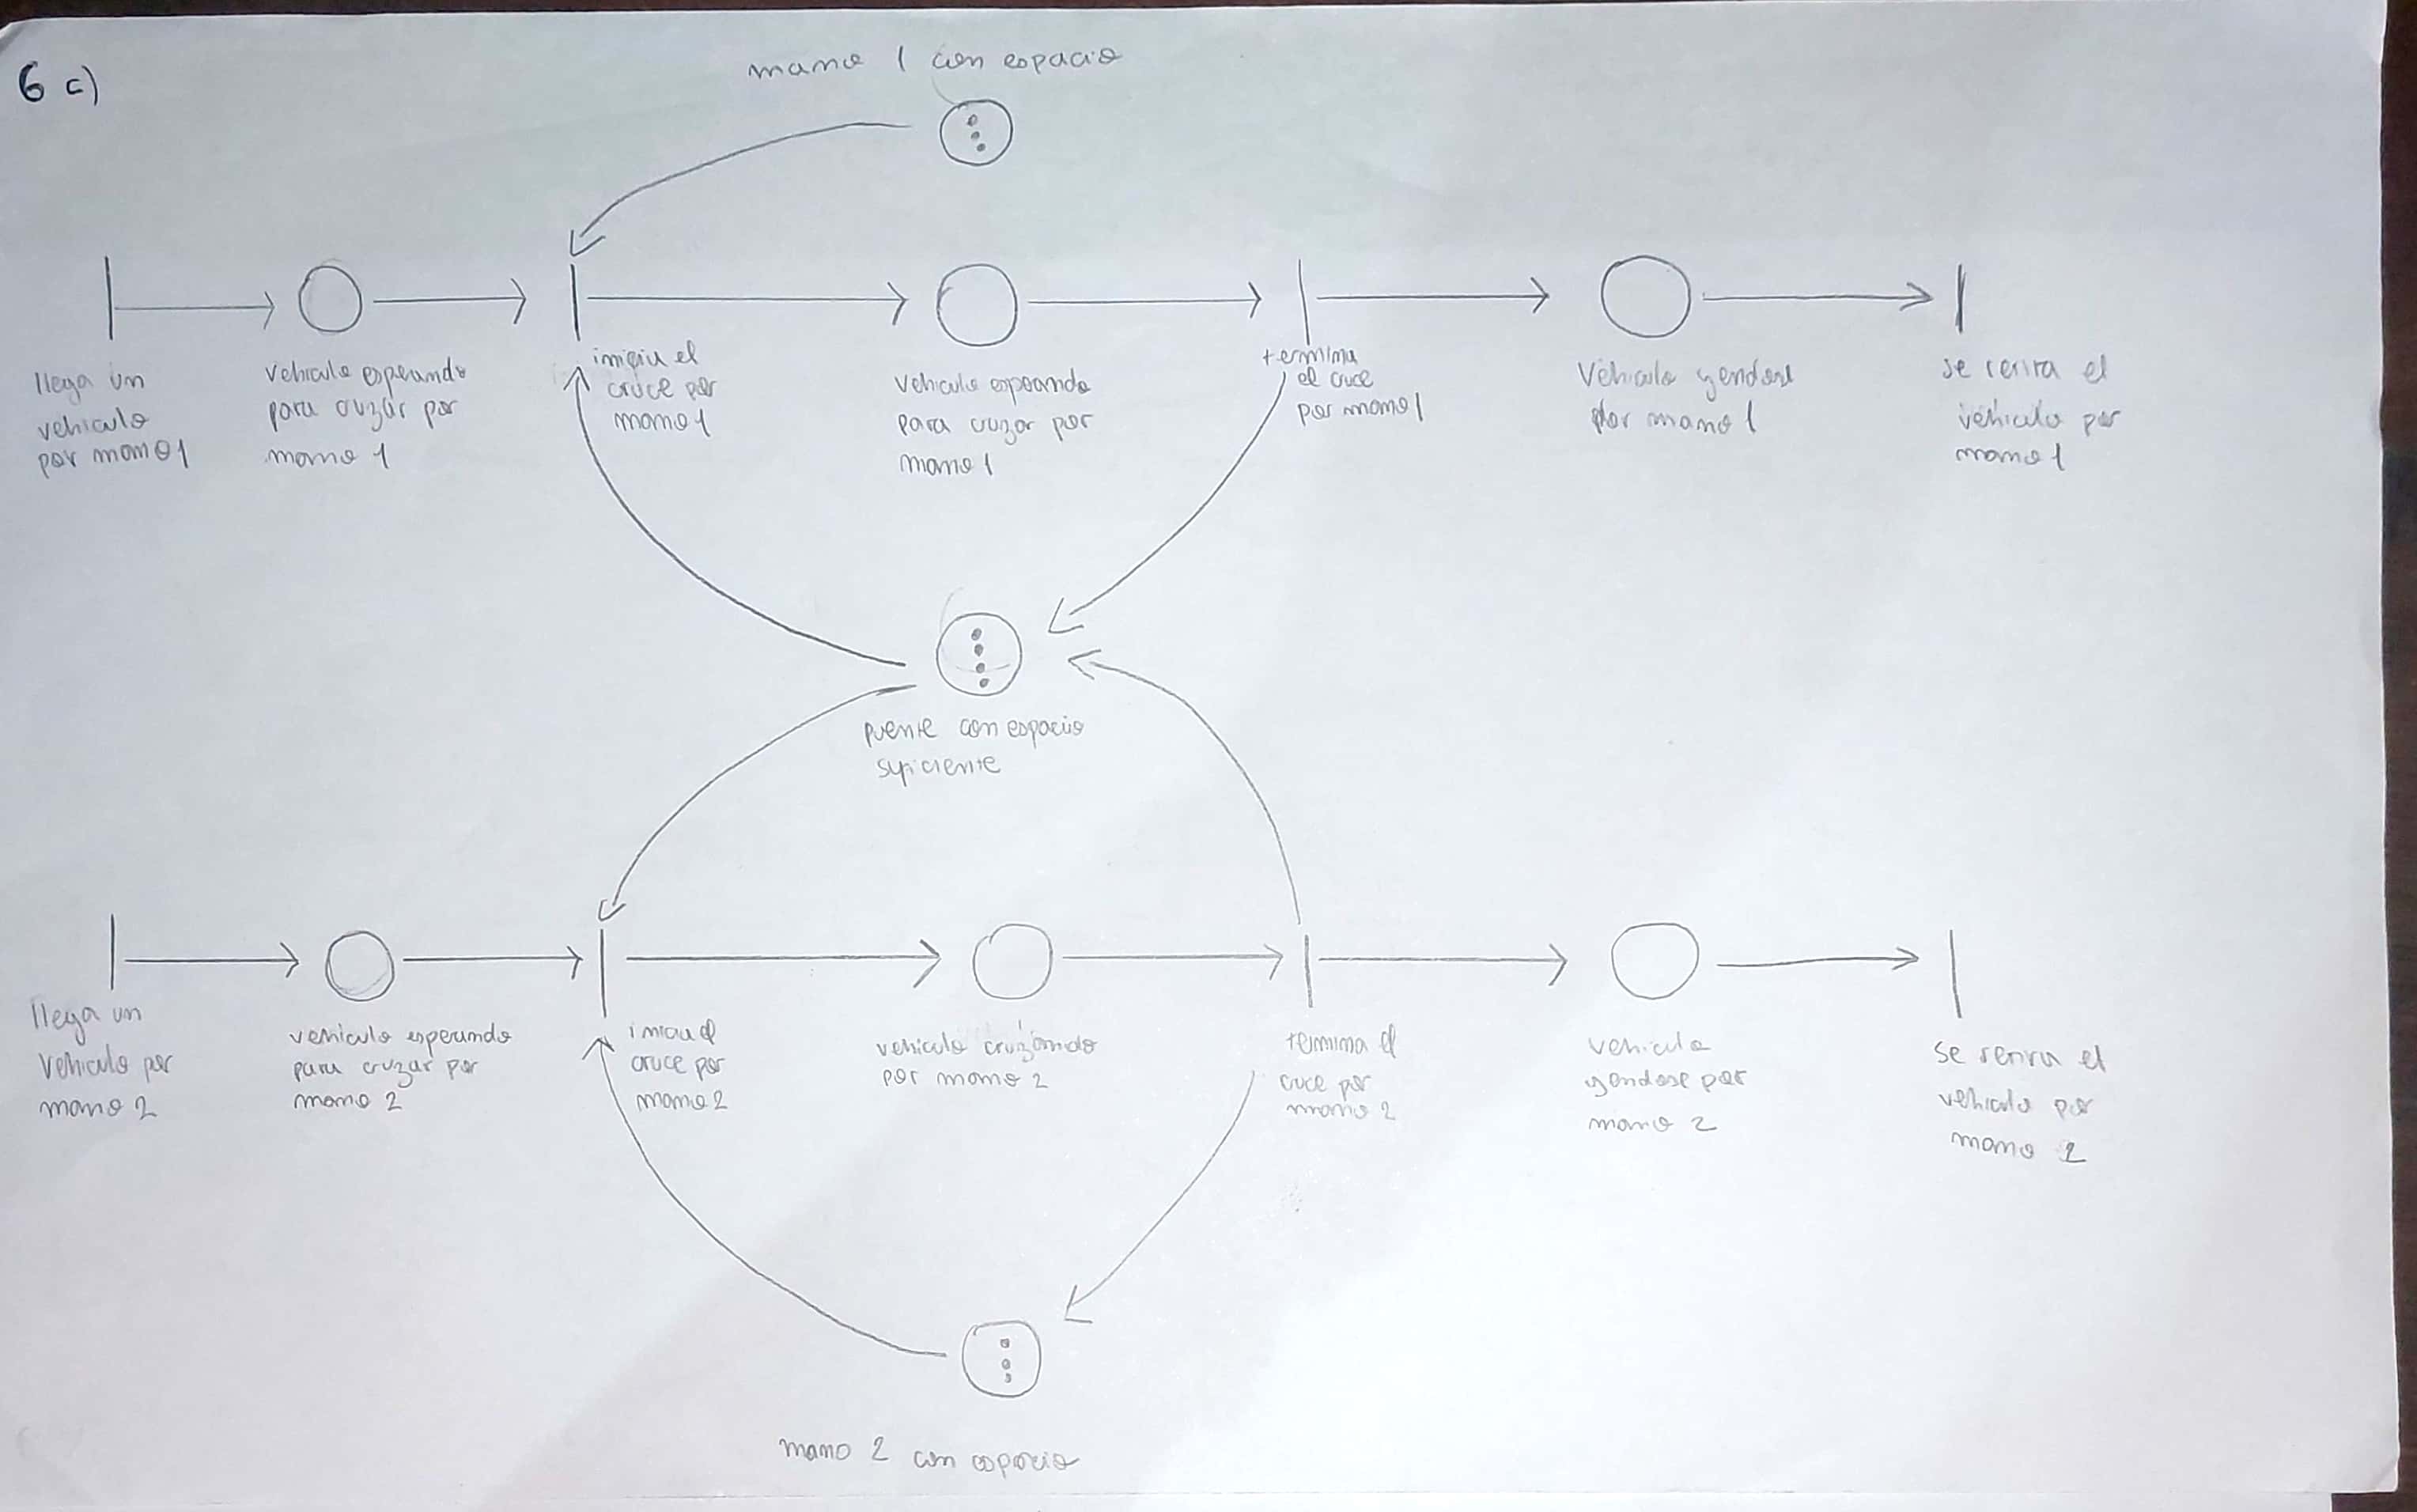 6 c)
mano 1 con espacio
llega un
vehiculo
por mano 1
vehiculo esperando
para cruzar por
mano 1
inicia el
cruce por
mano 1
vehiculo esperando
para cruzar por
mano 1
termina
el cruce
por mano 1
vehiculo yendose
por mano 1
se retira el
vehiculo por
mano 1
puente con espacio
suficiente
llega un
vehiculo por
mano 2
vehiculo esperando
para cruzar por
mano 2
inicia el
cruce por
mano 2
vehiculo cruzando
por mano 2
termina el
cruce por
mano 2
vehiculo
yendose por
mano 2
se retira el
vehiculo por
mano 2
mano 2 con espacio